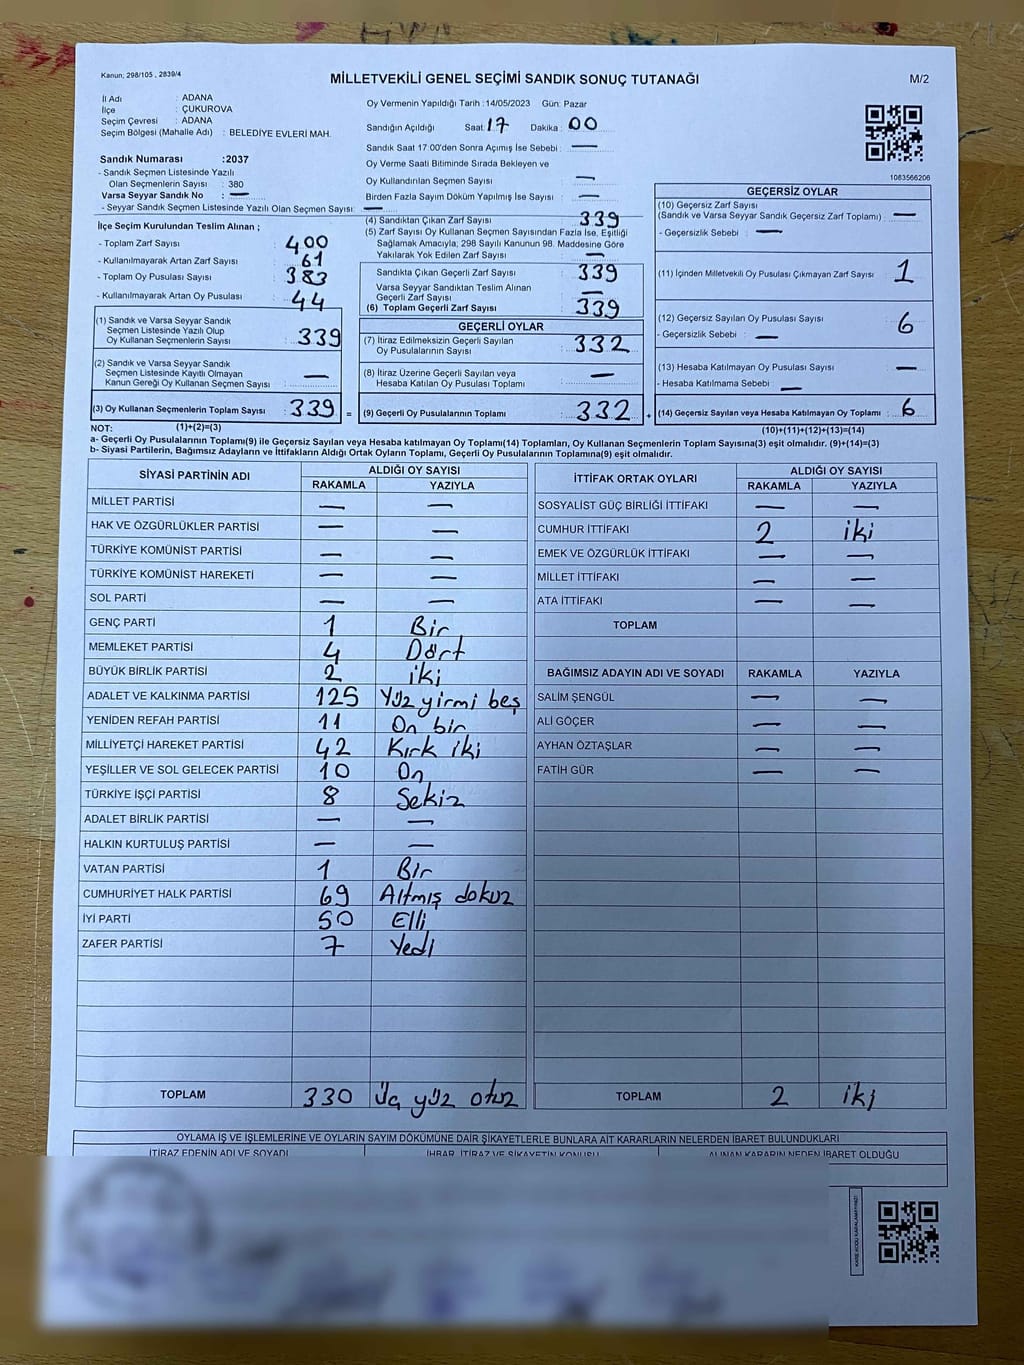 Kanun; 298/105 , 2839/4
MİLLETVEKİLİ GENEL SEÇİMİ SANDIK SONUÇ TUTANAĞI
M/2
İl Adı : ADANA
İlçe : ÇUKUROVA
Seçim Çevresi : ADANA
Seçim Bölgesi (Mahalle Adı) : BELEDİYE EVLERİ MAH.
Sandık Numarası :2037
- Sandık Seçmen Listesinde Yazılı
Olan Seçmenlerin Sayısı : 380
Varsa Seyyar Sandık No : —
- Seyyar Sandık Seçmen Listesinde Yazılı Olan Seçmen Sayısı: —
İlçe Seçim Kurulundan Teslim Alınan ;
- Toplam Zarf Sayısı : 400
- Kullanılmayarak Artan Zarf Sayısı : 61
- Toplam Oy Pusulası Sayısı : 383
- Kullanılmayarak Artan Oy Pusulası : 44
(1) Sandık ve Varsa Seyyar Sandık
Seçmen Listesinde Yazılı Olup
Oy Kullanan Seçmenlerin Sayısı : 339
(2) Sandık ve Varsa Seyyar Sandık
Seçmen Listesinde Kayıtlı Olmayan
Kanun Gereği Oy Kullanan Seçmen Sayısı : —
(3) Oy Kullanan Seçmenlerin Toplam Sayısı : 339 =
Oy Vermenin Yapıldığı Tarih :14/05/2023 Gün: Pazar
Sandığın Açıldığı Saat: 17 Dakika : 00
Sandık Saat 17:00'den Sonra Açımış İse Sebebi : —
Oy Verme Saati Bitiminde Sırada Bekleyen ve
Oy Kullandırılan Seçmen Sayısı : —
Birden Fazla Sayım Döküm Yapılmış İse Sayısı : —
(4) Sandıktan Çıkan Zarf Sayısı : 339
(5) Zarf Sayısı Oy Kullanan Seçmen Sayısından Fazla İse, Eşitliği
Sağlamak Amacıyla, 298 Sayılı Kanunun 98. Maddesine Göre
Yakılarak Yok Edilen Zarf Sayısı : —
Sandıkta Çıkan Geçerli Zarf Sayısı : 339
Varsa Seyyar Sandıktan Teslim Alınan
Geçerli Zarf Sayısı : —
(6) Toplam Geçerli Zarf Sayısı : 339
GEÇERLİ OYLAR
(7) İtiraz Edilmeksizin Geçerli Sayılan
Oy Pusulalarının Sayısı : 332
(8) İtiraz Üzerine Geçerli Sayılan veya
Hesaba Katılan Oy Pusulası Toplamı : —
(9) Geçerli Oy Pusulalarının Toplamı : 332 +
1083566206
GEÇERSİZ OYLAR
(10) Geçersiz Zarf Sayısı
(Sandık ve Varsa Seyyar Sandık Geçersiz Zarf Toplamı) : —
- Geçersizlik Sebebi : —
(11) İçinden Milletvekili Oy Pusulası Çıkmayan Zarf Sayısı : 1
(12) Geçersiz Sayılan Oy Pusulası Sayısı : 6
- Geçersizlik Sebebi : —
(13) Hesaba Katılmayan Oy Pusulası Sayısı : —
- Hesaba Katılmama Sebebi : —
(14) Geçersiz Sayılan veya Hesaba Katılmayan Oy Toplamı : 6
NOT: (1)+(2)=(3)
(10)+(11)+(12)+(13)=(14)
a- Geçerli Oy Pusulalarının Toplamı(9) ile Geçersiz Sayılan veya Hesaba katılmayan Oy Toplamı(14) Toplamları, Oy Kullanan Seçmenlerin Toplam Sayısına(3) eşit olmalıdır. (9)+(14)=(3)
b- Siyasi Partilerin, Bağımsız Adayların ve İttifakların Aldığı Ortak Oyların Toplamı, Geçerli Oy Pusulalarının Toplamına(9) eşit olmalıdır.
SİYASİ PARTİNİN ADI ALDIĞI OY SAYISI
RAKAMLA YAZIYLA
MİLLET PARTİSİ — —
HAK VE ÖZGÜRLÜKLER PARTİSİ — —
TÜRKİYE KOMÜNİST PARTİSİ — —
TÜRKİYE KOMÜNİST HAREKETİ — —
SOL PARTİ — —
GENÇ PARTİ 1 Bir
MEMLEKET PARTİSİ 4 Dört
BÜYÜK BİRLİK PARTİSİ 2 iki
ADALET VE KALKINMA PARTİSİ 125 Yüz yirmi beş
YENİDEN REFAH PARTİSİ 11 On bir
MİLLİYETÇİ HAREKET PARTİSİ 42 Kırk iki
YEŞİLLER VE SOL GELECEK PARTİSİ 10 On
TÜRKİYE İŞÇİ PARTİSİ 8 Sekiz
ADALET BİRLİK PARTİSİ — —
HALKIN KURTULUŞ PARTİSİ — —
VATAN PARTİSİ 1 Bir
CUMHURİYET HALK PARTİSİ 69 Altmış dokuz
İYİ PARTİ 50 Elli
ZAFER PARTİSİ 7 Yedi
TOPLAM 330 Üç yüz otuz
İTTİFAK ORTAK OYLARI ALDIĞI OY SAYISI
RAKAMLA YAZIYLA
SOSYALİST GÜÇ BİRLİĞİ İTTİFAKI — —
CUMHUR İTTİFAKI 2 iki
EMEK VE ÖZGÜRLÜK İTTİFAKI — —
MİLLET İTTİFAKI — —
ATA İTTİFAKI — —
TOPLAM
BAĞIMSIZ ADAYIN ADI VE SOYADI RAKAMLA YAZIYLA
SALİM ŞENGÜL — —
ALİ GÖÇER — —
AYHAN ÖZTAŞLAR — —
FATİH GÜR — —
TOPLAM 2 iki
OYLAMA İŞ VE İŞLEMLERİNE VE OYLARIN SAYIM DÖKÜMÜNE DAİR ŞİKAYETLERLE BUNLARA AİT KARARLARIN NELERDEN İBARET BULUNDUKLARI
İTİRAZ EDENİN ADI VE SOYADI İHBAR, İTİRAZ VE ŞİKAYETİN KONUSU ALINAN KARARIN NEDEN İBARET OLDUĞU
KARE KODU KARALAMAYINIZ!